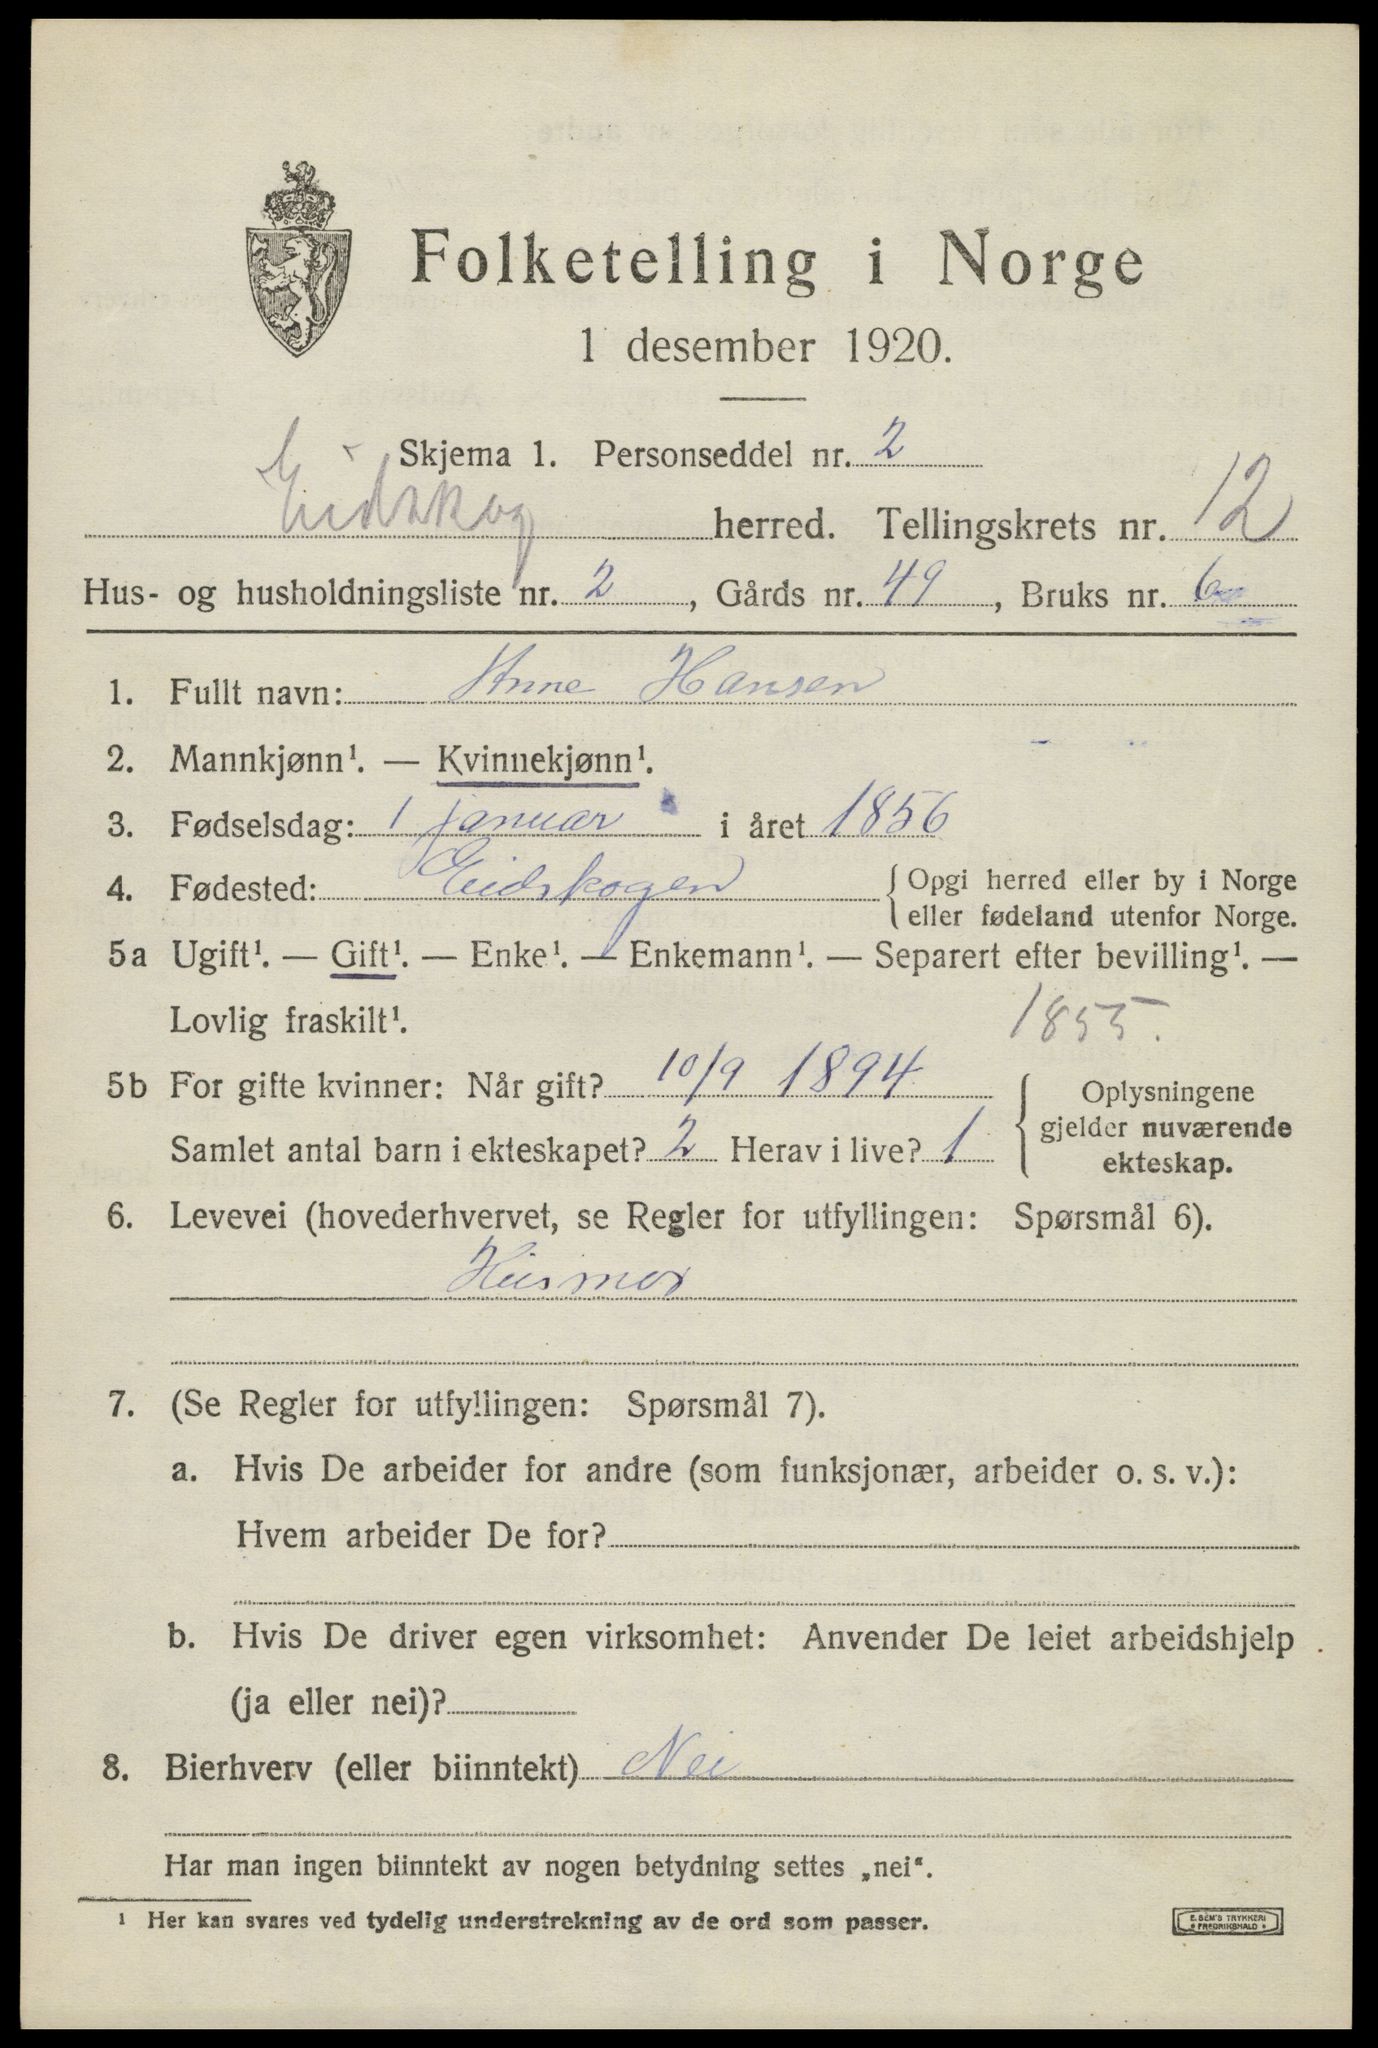 Folketelling i Norge
1 desember 1920.
Skjema 1. Personseddel nr. 2
Eidskog herred. Tellingskrets nr. 12
Hus- og husholdningsliste nr. 2, Gårds nr. 49, Bruks nr. 6
1. Fullt navn: Anne Hansen
2. Mannkjønn¹. — Kvinnekjønn¹.
3. Fødselsdag: 1 januar i året 1856
4. Fødested: Eidskogen {Opgi herred eller by i Norge
eller fødeland utenfor Norge.
5a Ugift¹. — Gift¹. — Enke¹. — Enkemann¹. — Separert efter bevilling¹. —
Lovlig fraskilt¹. 1855.
5b For gifte kvinner: Når gift? 10/9 1894
Samlet antal barn i ekteskapet? 2 Herav i live? 1
Oplysningene
gjelder nuværende
ekteskap.
6. Levevei (hovederhvervet, se Regler for utfyllingen: Spørsmål 6).
Husmor
7. (Se Regler for utfyllingen: Spørsmål 7).
a. Hvis De arbeider for andre (som funksjonær, arbeider o. s. v.):
Hvem arbeider De for?
b. Hvis De driver egen virksomhet: Anvender De leiet arbeidshjelp
(ja eller nei)?
8. Bierhverv (eller biinntekt) Nei
Har man ingen biinntekt av nogen betydning settes „nei“.
¹ Her kan svares ved tydelig understrekning av de ord som passer.
E. SEM'S TRYKKERI
FREDRIKSHALD